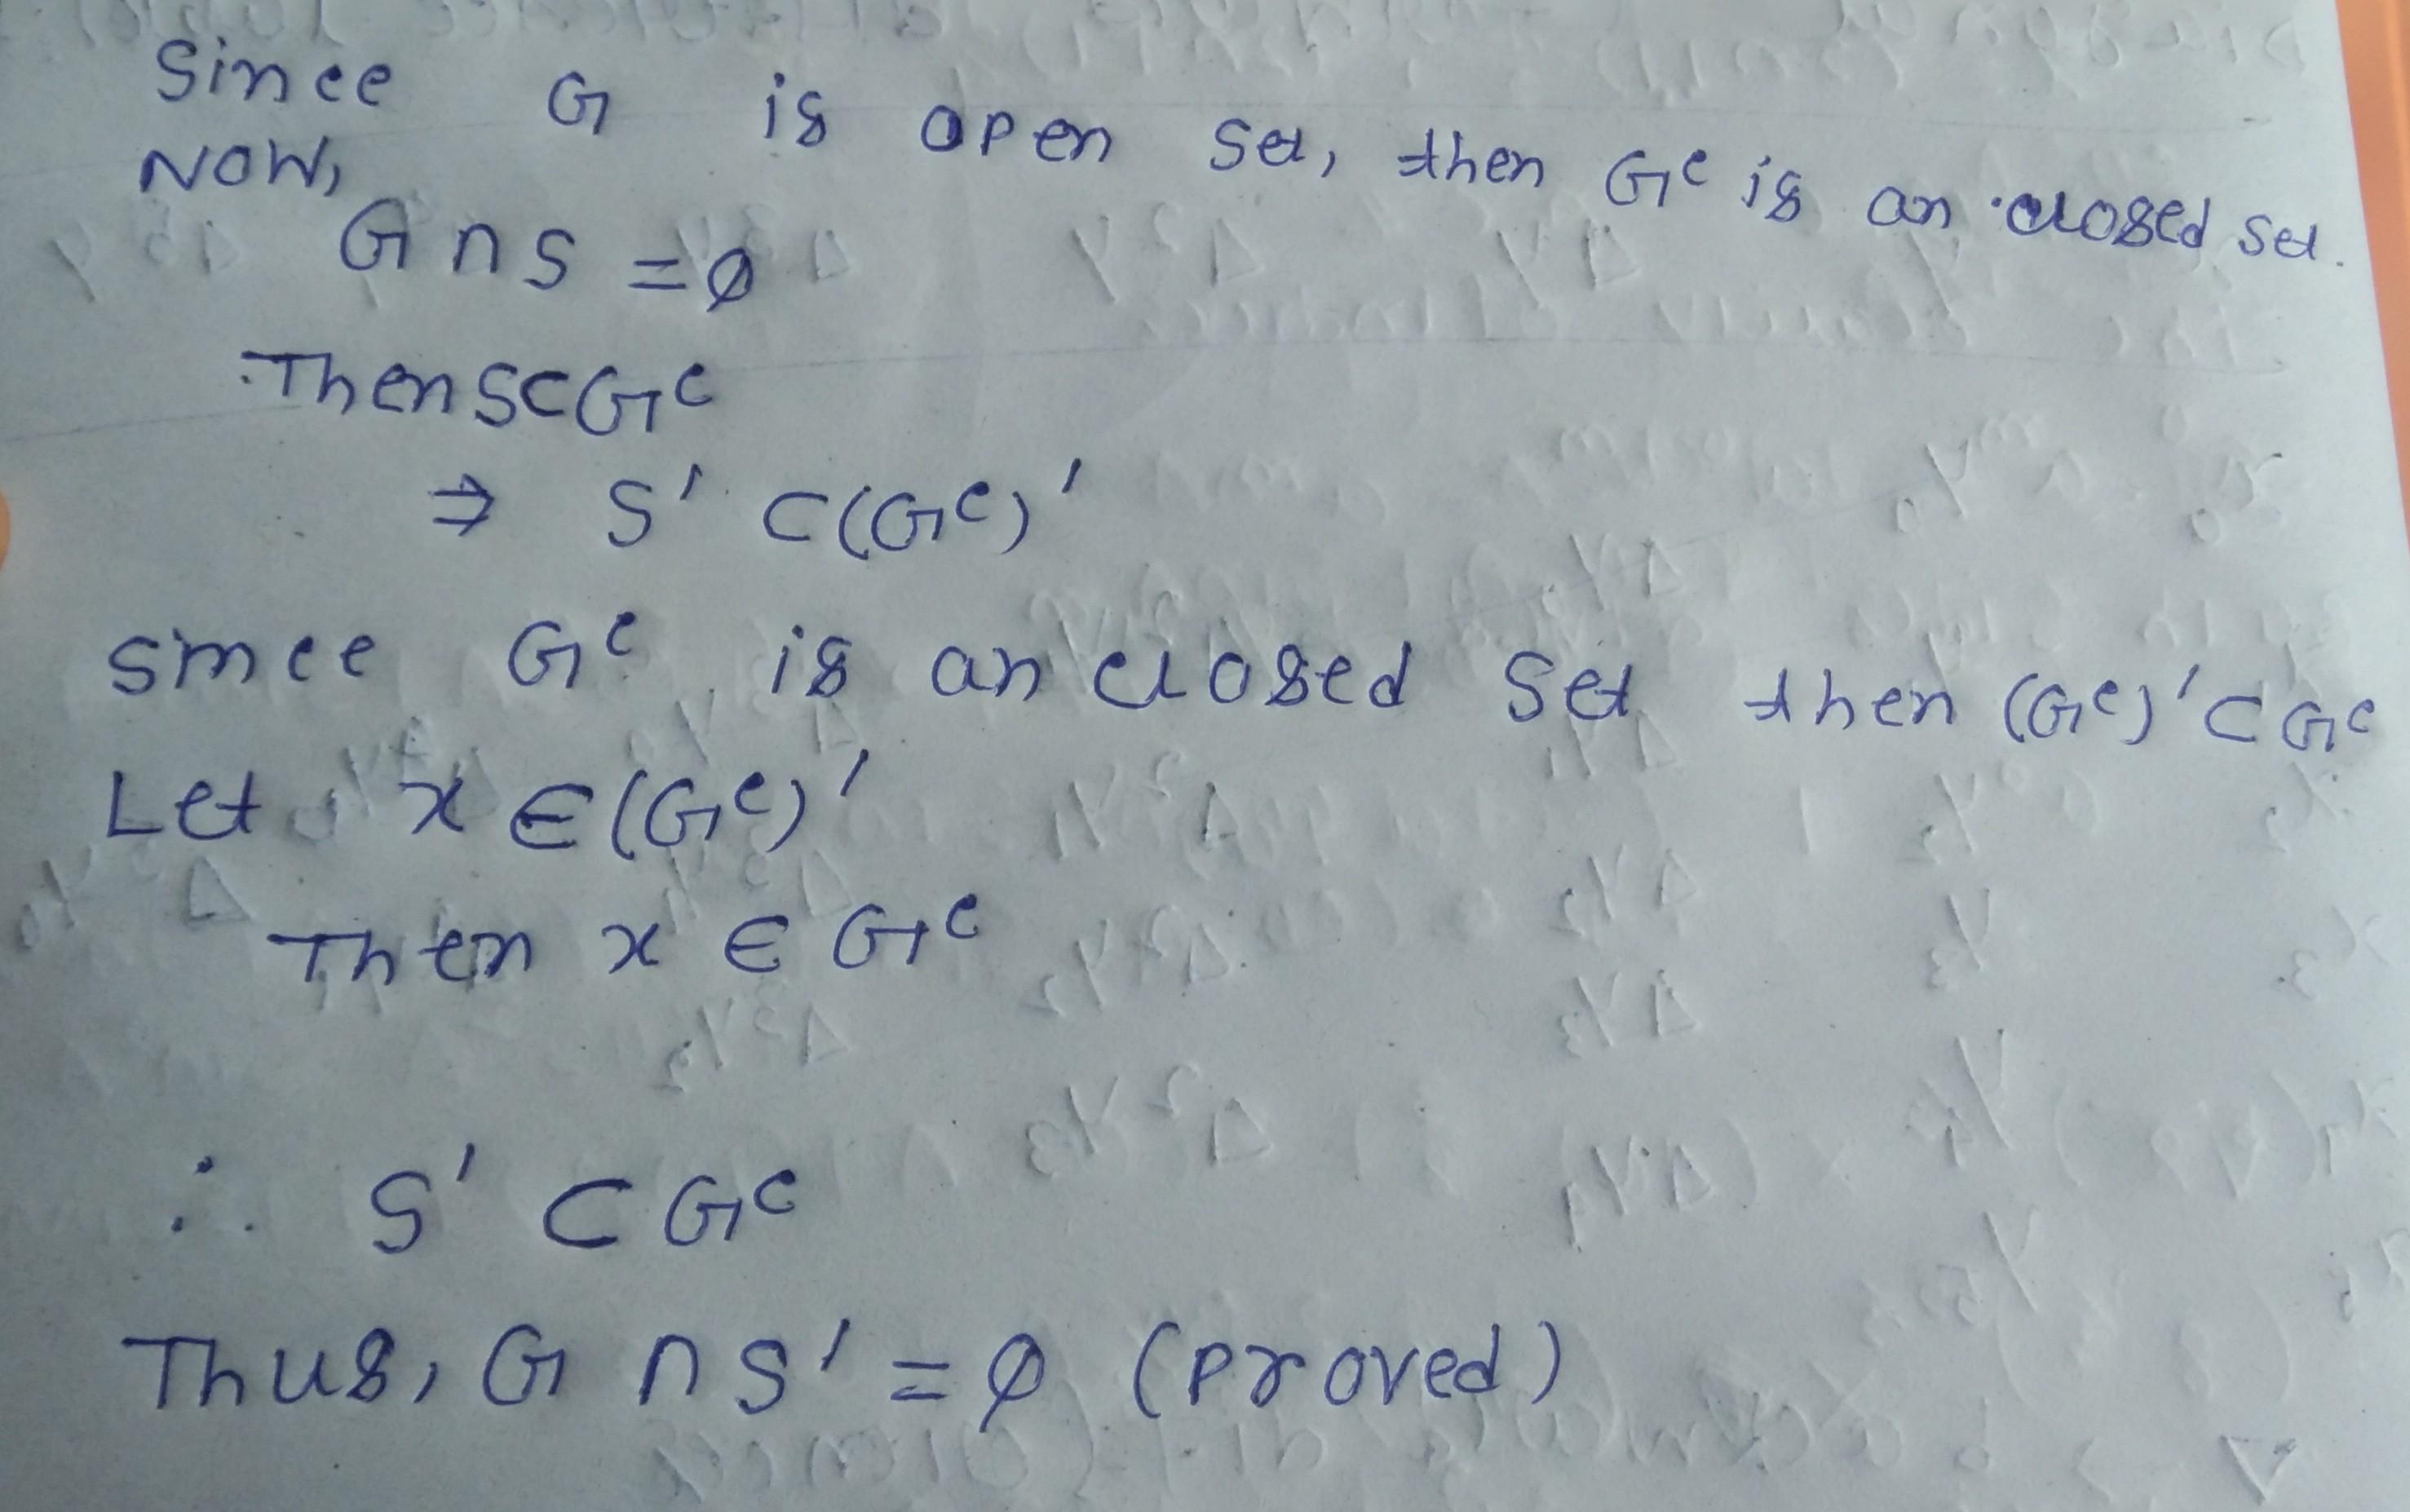 Since G is open set, then Gᶜ is an closed set.
NOW,
G ∩ S = ∅
Then S ⊂ Gᶜ
⇒ S' ⊂ (Gᶜ)'
Since Gᶜ is an closed set then (Gᶜ)' ⊂ Gᶜ
Let x ∈ (Gᶜ)'
Then x ∈ Gᶜ
∴ S' ⊂ Gᶜ
Thus, G ∩ S' = ∅ (proved)